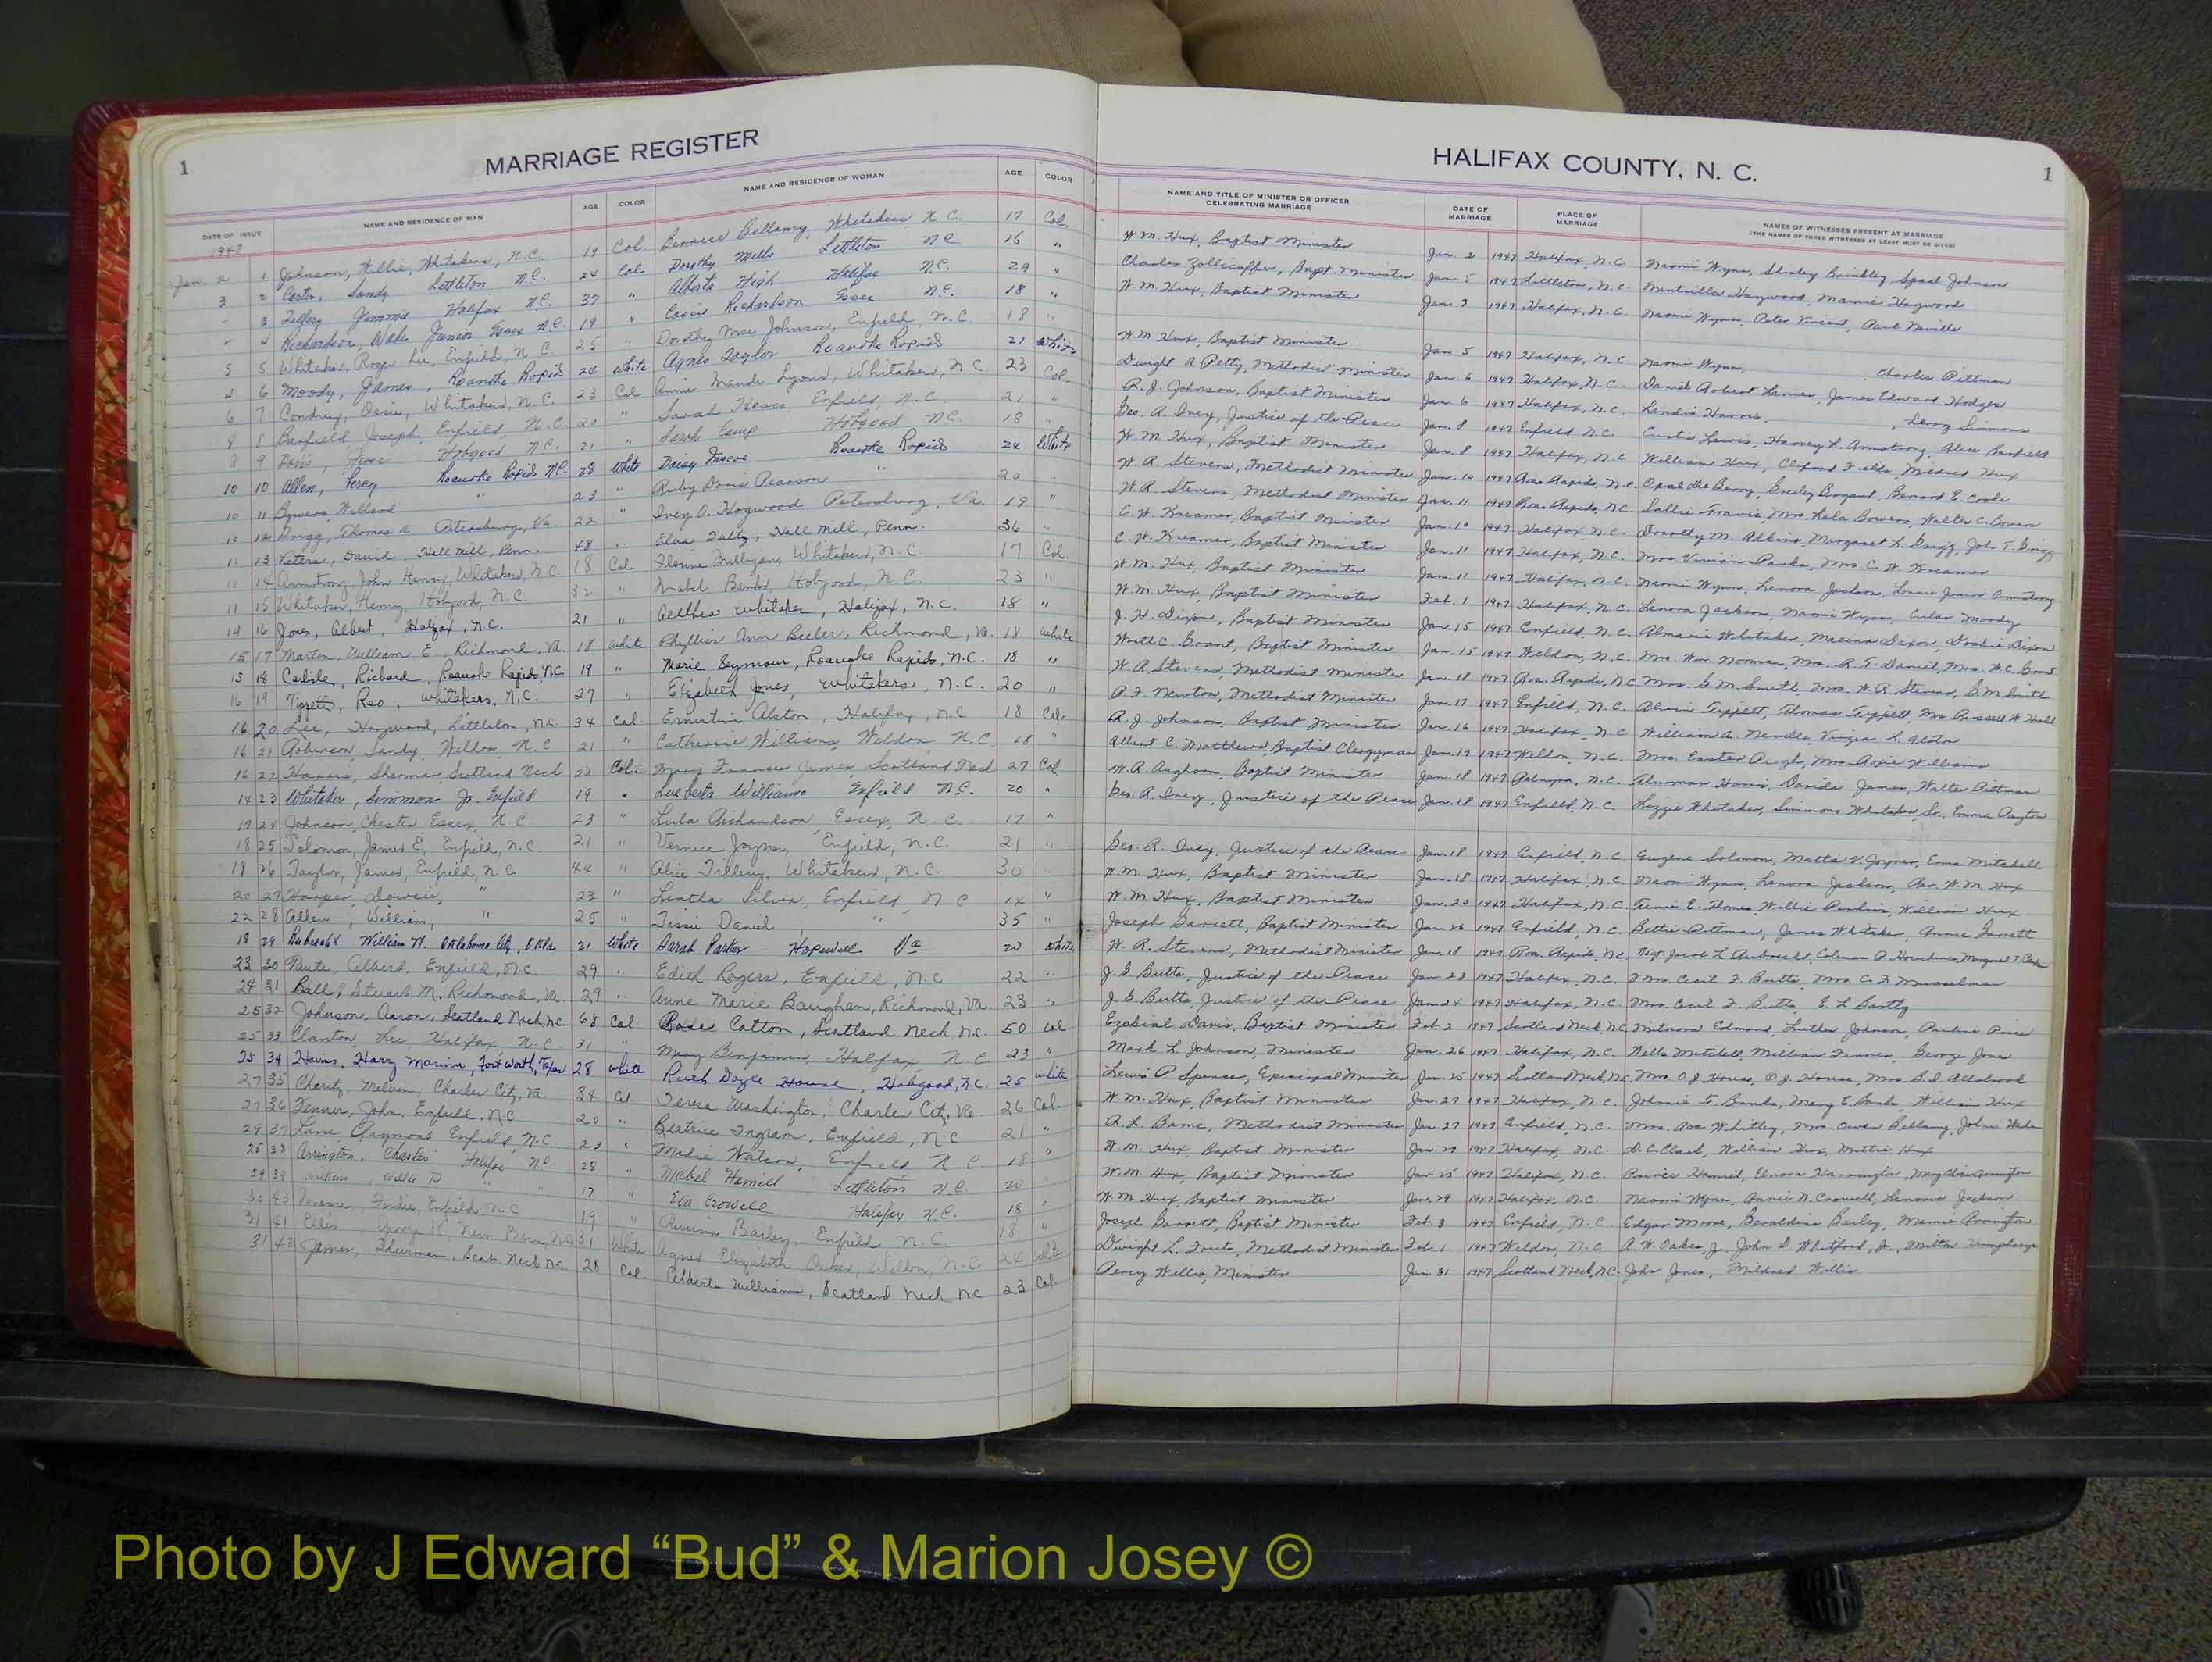 1
MARRIAGE REGISTER
DATE OF ISSUE NAME AND RESIDENCE OF MAN AGE COLOR NAME AND RESIDENCE OF WOMAN AGE COLOR
1947
Jan. 2 1 Johnson, Willie, Whitakers, N.C. 19 Col. Bernice Bellamy, Whitakers N.C. 17 Col.
3 2 Carter, Sandy Littleton N.C. 24 Col Dorothy Mills Littleton NC 16 "
3 Jimmie Halifax N.C. 37 " Alberta High Halifax N.C. 29 "
4 Richardson, Wade Junior Essex N.C. 19 " Richardson Essex N.C. 18 "
5 5 Whitaker, Roger Lee, Enfield, N.C. 25 " Dorothy Mae Johnson, Enfield, N.C. 18 "
6 Moody, James, Roanoke Rapids 24 White Agnes Taylor Roanoke Rapids 21 White
6 7 Ossie, Whitakers, N.C. 23 Col Annie Maude Lyons, Whitakers, N.C. 23 Col.
8 8 Barfield Joseph, Enfield N.C. 20 " Sarah Enfield, N.C. 21 "
8 9 Davis, Jesse Hobgood N.C. 21 " Sarah Hobgood N.C. 18 "
10 10 Allen, Percy Roanoke Rapids N.C. 28 White Daisy Roanoke Rapids 24 White
10 11 Bowers, Willard " 23 " Ruby Doris Pearson " 20 "
10 12 Thomas A. Petersburg, Va. 22 " Ivey O. Hogwood Petersburg, Va. 19 "
11 13 Peters, David, Hall Mill, Penn. 48 " Elva Hall Mill, Penn. 36 "
11 14 Armstrong, John Henry, Whitakers, N.C 18 Col Whitakers, N.C. 17 Col
11 15 Whitaker, Henry, Hobgood, N.C. 32 " Mabel Hobgood, N.C. 23 "
14 16 Jones, Albert, Halifax, N.C. 21 " Aelthea Whitaker, Halifax, N.C. 18 "
15 17 Martin, William E. Richmond, Va. 18 white Phyllis Ann Beeler, Richmond, Va. 18 white
15 18 Carlisle, Richard, Roanoke Rapids, N.C. 19 " Marie Seymour, Roanoke Rapids, N.C. 18 "
16 19 Reo, Whitakers, N.C. 27 " Elizabeth Jones, Whitakers, N.C. 20 "
16 20 Lee, Haywood, Littleton, N.C. 34 Col. Ernestine Alston, Halifax, N.C 18 Col.
16 21 Robinson, Sandy, Weldon N.C 21 " Catherine Williams, Weldon N.C. 18 "
16 22 Harris, Sherman, Scotland Neck 23 Col. Mary Frances James, Scotland Neck 27 Col
14 23 Whitaker, Simmon Jr. Enfield 19 " Lueberta Williams Enfield N.C. 20 "
17 24 Johnson, Chester Essex, N.C. 23 " Lula Richardson, Essex, N.C. 17 "
18 25 Solomon, James E. Enfield, N.C. 21 " Vernice Joyner, Enfield, N.C. 21 "
19 26 Taylor, James, Enfield, N.C 44 " Alice Tillery, Whitakers, N.C. 30
20 27 Harper, " 23 " Leatha Silver, Enfield, N.C "
22 28 Allen, William, " 25 " Tissie Daniel " 35 "
18 29 William N. Oklahoma City, Okla 21 White Sarah Parker Hopewell Va 20 White
23 30 Albert, Enfield, N.C. 29 " Edith Rogers, Enfield, N.C 22 "
24 31 Ball, Stuart M. Richmond, Va. 29 " Anne Marie Baughan, Richmond, Va. 23 "
25 32 Johnson, Aaron, Scotland Neck N.C. 68 Col. Rosa Cotton, Scotland Neck N.C. 50 Col
25 33 Clanton, Lee, Halifax N.C. 31 " Mary Benjamin, Halifax N.C 23 "
25 34 Harry Fort Worth, Texas 28 white Ruth Doyle House, Hobgood, N.C. 25 white
27 35 Charity, Melvin, Charles City, Va. 34 Col. Teresa Washington, Charles City, Va 26 Col.
27 36 Fenner, John, Enfield, N.C 20 " Beatrice Ingram, Enfield, N.C 21 "
29 37 Lane, Raymond Enfield, N.C. 23 " Modie Watson, Enfield N.C. 18 "
25 38 Arrington, Charles Halifax N.C. 28 " Mabel Hamill Littleton N.C. 20 "
29 39 Willie D " 17 " Eva Crowell Halifax N.C. 18 "
30 40 Moore, Enfield, N.C 19 " Bailey, Enfield, N.C. 18 "
31 41 New Bern, N.C. 31 White Agnes Elizabeth Oakes, Weldon, N.C. 24 White
31 42 James, Thurman, Scot. Neck N.C. 28 Col. Alberta Williams, Scotland Neck NC 23 Col.
HALIFAX COUNTY, N. C.
1
NAME AND TITLE OF MINISTER OR OFFICER CELEBRATING MARRIAGE DATE OF MARRIAGE PLACE OF MARRIAGE NAMES OF WITNESSES PRESENT AT MARRIAGE
(THE NAMES OF THREE WITNESSES AT LEAST MUST BE GIVEN)
W.M. Hux, Baptist Minister Jan. 2 1947 Halifax, N.C. Naomi Wynn, Shirley Brinkley, Johnson
Charles Zollicoffer, Bapt. Minister Jan. 5 1947 Littleton, N.C. Haywood, Mamie Haywood
W.M. Hux, Baptist Minister Jan. 3 1947 Halifax, N.C. Naomi Wynn, Peter Vincent, Paul Neville
W.M. Hux, Baptist Minister Jan 5 1947 Halifax, N.C Naomi Wynn, Charles Pittman
Dwight A Petty, Methodist Minister Jan. 6 1947 Halifax, N.C. Daniel Robert James Edward Hodges
R.J. Johnson, Baptist Minister Jan. 6 1947 Halifax, N.C. Harris, Leroy Simmons
Geo. R. Ivey, Justice of the Peace Jan. 8 1947 Enfield, N.C. Curtis Lewis, Harvey L. Armstrong, Alice Barfield
W.M. Hux, Baptist Minister Jan. 8 1947 Halifax, N.C. William Hux, Fields, Mildred Hux
W.R. Stevens, Methodist Minister Jan. 10 1947 Roa. Rapids, N.C. Opal De Berry, Bryant, Bernard E. Cooke
W.R. Stevens, Methodist Minister Jan. 11 1947 Roa. Rapids, N.C. Sallie Travis, Mrs. Lela Bowers, Walter C. Bowers
C.W. Kreamer, Baptist Minister Jan. 10 1947 Halifax, N.C. Dorothy M. Margaret L.
C.W. Kreamer, Baptist Minister Jan. 11 1947 Halifax, N.C. Mrs. Vivian Parks, Mrs. C.W. Kreamer
W.M. Hux, Baptist Minister Jan. 11 1947 Halifax, N.C. Naomi Wynn, Lenora Jackson, Junior Armstrong
W.M. Hux, Baptist Minister Feb. 1 1947 Halifax, N.C. Lenora Jackson, Naomi Wynn, Moody
J.H. Dixon, Baptist Minister Jan. 15 1947 Enfield, N.C. Whitaker, Dixon, Dixon
C. Grant, Baptist Minister Jan. 15 1947 Weldon, N.C. Mrs. Norman, Mrs. R.T. Daniel, Mrs. W.C. Grant
W.R. Stevens, Methodist Minister Jan. 18 1947 Roa. Rapids, N.C. Mrs. G.M. Smith, Mrs. W.R. Stevens, G.M. Smith
Newton, Methodist Minister Jan. 17 1947 Enfield, N.C. Thomas
R.J. Johnson, Baptist Minister Jan. 16 1947 Halifax, N.C. William A. Neville,
Albert C. Matthews, Baptist Clergyman Jan. 19 1947 Weldon, N.C. Mrs. Easter Pugh, Mrs.
W.R. Baptist Minister Jan. 18 1947 Palmyra, N.C. Harris, James, Walter Pittman
Geo. R. Ivey, Justice of the Peace Jan. 18 1947 Enfield, N.C. Lizzie Whitaker, Simmons Whitaker, Sr. Emma
Geo. R. Ivey, Justice of the Peace Jan. 18 1947 Enfield N.C. Eugene Solomon, Mattie V. Joyner, Mitchell
W.M. Hux, Baptist Minister Jan. 18 1947 Halifax, N.C. Naomi Wynn, Lenora Jackson, Rev. W.M. Hux
W.M. Hux, Baptist Minister Jan. 20 1947 Halifax, N.C. E. Willie William Hux
Joseph Garrett, Baptist Minister Jan. 26 1947 Enfield, N.C. Bettie Pittman, James Whitaker, Annie Garrett
W.R. Stevens, Methodist Minister Jan. 18 1947 Roa. Rapids, N.C.
J.G. Butts, Justice of the Peace Jan 23 1947 Halifax, N.C. Mrs. Cecil F. Butts, Mrs. C.F. Musselman
J.G. Butts, Justice of the Peace Jan 24 1947 Halifax, N.C. Mrs. Cecil F. Butts,
Davis, Baptist Minister Feb. 2 1947 Scotland Neck, N.C. Edmond, Luther Johnson,
Mark L. Johnson, Minister Jan. 26 1947 Halifax, N.C. Mitchell, William George Jones
Lewis P. Spence, Episcopal Minister Jan. 25 1947 Scotland Neck, N.C. Mrs. O.J. House, O.J. House, Mrs. Allsbrook
W.M. Hux, Baptist Minister Jan. 27 1947 Halifax, N.C. Johnnie T. Banks, Mary E. Banks, William Hux
R.L. Methodist Minister Jan 27 1947 Enfield, N.C. Mrs. Ava Whitley, Mrs. Owen Bellamy, John
W.M. Hux, Baptist Minister Jan. 29 1947 Halifax, N.C. D.C. Clark, William Hux, Mattie Hux
W.M. Hux, Baptist Minister Jan 25 1947 Halifax, N.C. Elnora
W.M. Hux, Baptist Minister Jan. 29 1947 Halifax, N.C. Naomi Wynn, Annie N. Crowell, Jackson
Joseph Garrett, Baptist Minister Feb 3 1947 Enfield, N.C. Edgar Moore, Geraldine Bailey, Mamie Arrington
Dwight L. Fouts, Methodist Minister Feb. 1 1947 Weldon, N.C. R.W. Oakes, Jr. John D. Whitford, Jr.
Percy Willis, Minister Jan. 31 1947 Scotland Neck, N.C. John Jones, Mildred Willis
Photo by J Edward “Bud” & Marion Josey ©